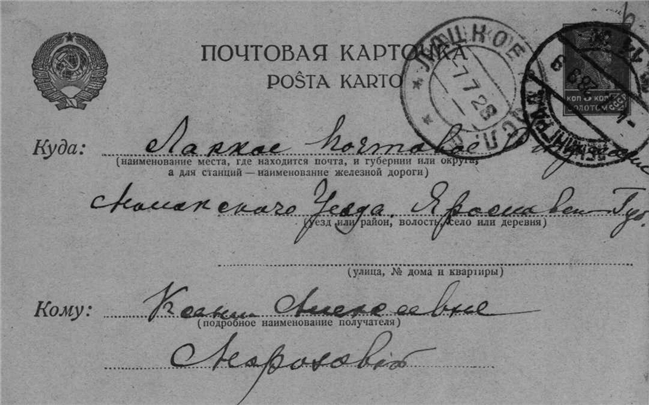 ПОЧТОВАЯ КАРТОЧКА
POŜTA KARTO
ЛАЦКОЕ
7 7 28
ЛЕНИНГРАД
КОП КОП
ЗОЛОТОМ
Куда: Лацкое Почтовое
(наименование места, где находится почта, и губернии или округа,
а для станций — наименование железной дороги)
Мологского Уезда, Ярославск Губ.
(уезд или район, волость, село или деревня)
(улица, № дома и квартиры)
Кому: Ксении Алексеевне
(подробное наименование получателя)
Морозовой